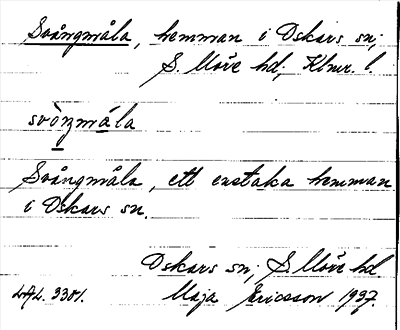 Svångmåla, hemman i Oskars sn;
S. Möre hd; Klmr. l.
svòŋmåla
Svångmåla, ett enstaka hemman
i Oskars sn.
Oskars sn; S. Möre hd
LAL. 3301. Maja Ericsson 1937.